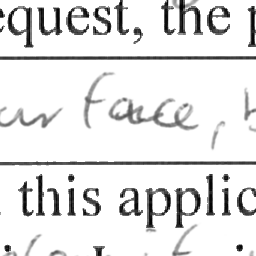 equest, the p
our face, b
this applic